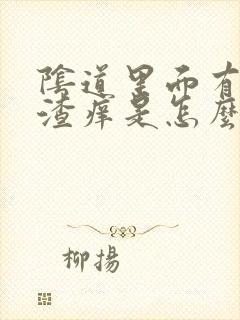 陰道里面有
渣痒是怎麽
柳揚